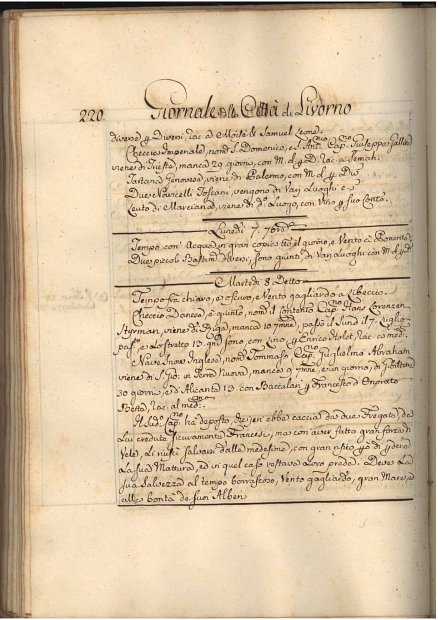 220. Giornale della Città di Livorno
diverse p Diversi, rac. a Moisè de Samuel Leone.
Checcio Imperiale, nom.º S. Domenico, e S. Ant.º Cap.º Giuseppe
viene di Trieste, manca 29 giorni, con M. d. p D. rac. a
Tartana Genovese, viene di Palermo, con M. d. p D.
Due Navicelli Toscani, vengono di Van Luoghi e
Leuto di Marciana, viene di d.º Luogo, con Vino p suo Conto.
Lunedì 7. 7bre
Tempo con Acqua in gran copia tt.º il giorno, e Vento a Ponente
Due piccoli Bastim. diversi, sono giunti di Van Luoghi con M. d. p D.
Martedì 8 Detto
Tempo fra chiaro, e oscuro, e Vento gagliardo a Libeccio.
Checcio Danese, a quinto, nom.º il Contento Cap. Hans Lorensen
Styrman, viene di Riga, manca 10 7mne, passò il Sund il 7. Luglio
pass.º, e lo stretto 13. gni sono, con Lino, p Enrico, rac. a med.
Nave Snow Inglese, nom.º Tommaso, Cap. Guglielmo Abraham
viene di S. Gio: in Terra Nuova, manca 9 7mne, e un giorno, di Gibilterra
30 giorni, e d'Alicante 13. con Baccalari p Francesco d'Onorato
Berte, rac. al med.º
Il sud.º Cap.º ha deposto, che jeri ebbe caccia da due Fregate, da
Lui credute sicuramente Francesi, ma con aver fatto gran forza di
Vele, li riuscì salvarsi dalle medesime, con gran risico p di perdere
La sua Mattura, ed in quel caso restava Loro preda. Deve La
sua salvezza al tempo borrascoso, Vento gagliardo, gran Mare, ed
alla bontà de suoi Alberi